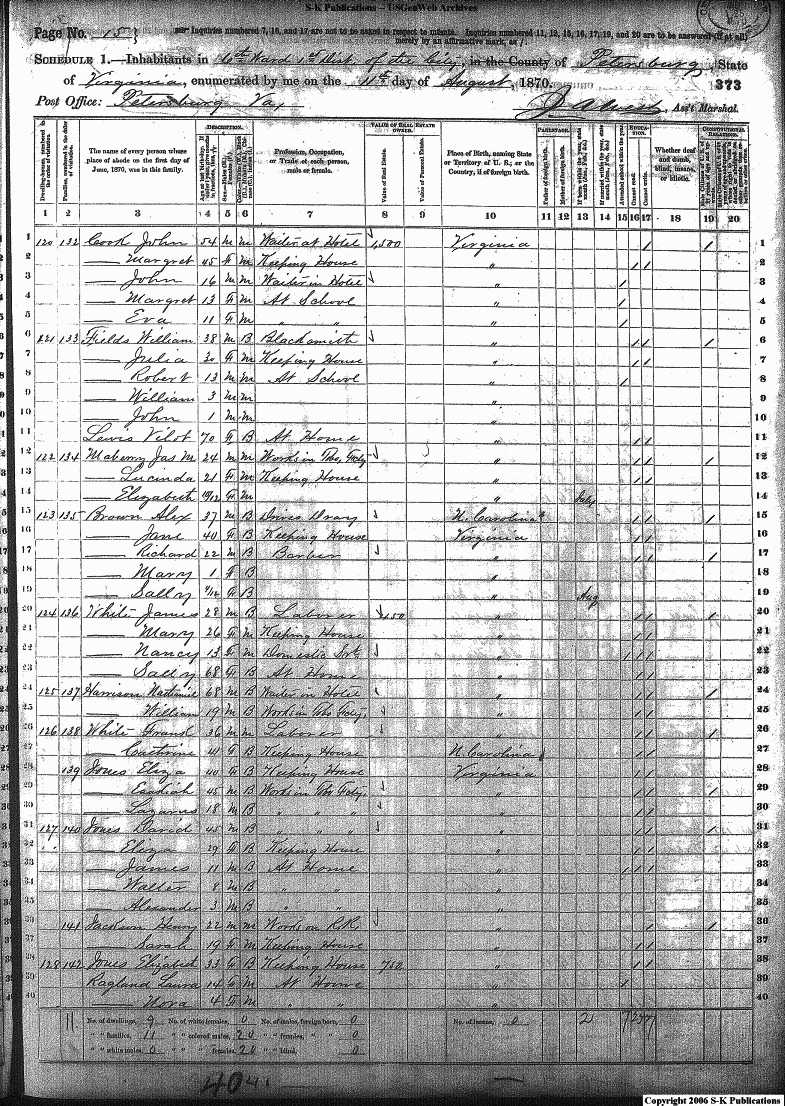 S-K Publications – USGenWeb Archives
Page No. 15
Inquiries numbered 7, 16, and 17 are not to be asked in respect to infants. Inquiries numbered 11, 12, 15, 16, 17, 19, and 20 are to be answered (if at all)
merely by an affirmative mark, as /.
SCHEDULE 1.—Inhabitants in 6th Ward 1st Dist. of the City, in the County of Petersburg, State
of Virginia, enumerated by me on the 11th day of August, 1870. 373
Post Office: Petersburg Va, Ass't Marshal.
DESCRIPTION. VALUE OF REAL ESTATE OWNED. PARENTAGE. EDUCATION. CONSTITUTIONAL RELATIONS.
The name of every person whose place of abode on the first day of June, 1870, was in this family. Profession, Occupation, or Trade of each person, male or female. Value of Real Estate. Value of Personal Estate. Place of Birth, naming State or Territory of U. S.; or the Country, if of foreign birth. Father of foreign birth. Mother of foreign birth. Attended school within the year. Cannot read. Cannot write. Whether deaf and dumb, blind, insane, or idiotic.
1 2 3 4 5 6 7 8 9 10 11 12 13 14 15 16 17 18 19 20
1 120 132 Cook John 54 M M Waiter at Hotel 1,500 Virginia / / 1
2 — Margret 45 F M Keeping House " / / 2
3 — John 16 M M Waiter in Hotel " / 3
4 — Margret 13 F M At School " / 4
5 — Eva 11 F M " " " / 5
6 121 133 Fields William 38 M B Blacksmith " / / / 6
7 — Julia 30 F M Keeping House " / / 7
8 — Robert 13 M M At School " / 8
9 — William 3 M M " 9
10 — John 1 M M " 10
11 Lewis Vilot 70 F B At Home " / / 11
12 122 134 Maberry Jas M 24 M M Works in Tbo, Fcty " / / / 12
13 — Lucinda 21 F M Keeping House " / / 13
14 — Elizabeth F M " July 14
15 123 135 Brown Alex 37 M B Drives Dray N. Carolina / / / 15
16 — Jane 40 F B Keeping House Virginia / / 16
17 — Richard 22 M B Barber " / / / 17
18 — Mary 1 F B " 18
19 — Sally F B " Aug 19
20 124 136 White James 28 M B Laborer 450 " / / / 20
21 — Mary 26 F M Keeping House " / / 21
22 — Nancy 13 F M Domestic Svt " / / / 22
23 — Sally 68 F B At Home " / / 23
24 125 137 Harrison 68 M B Waiter in Hotel " / / / 24
25 — William 19 M B Works in Tbo Fcty, " / / 25
26 126 138 White Frank 36 M M Laborer " / / / 26
27 — Cathrine 41 F B Keeping House N. Carolina / / 27
28 139 Jones Eliza 40 F B Keeping House Virginia / / 28
29 — 45 M B Works in Tbo Fcty, " / / / 29
30 — Lazarus 18 M B " " " " / / 30
31 127 140 Jones David 45 M B " " " " / / / 31
32 — Eliza 29 F B Keeping House " / / 32
33 — James 11 M B At Home " / / / 33
34 — Walter 8 M B " " " 34
35 — Alexander 3 M B " " 35
36 141 Jackson Henry 22 M M Works on R.R. " / / 36
37 — Sarah 19 F M Keeping House " / / 37
38 128 142 Jones Elizabeth 33 F B Keeping House 750 " / / 38
39 Ragland Laura 14 F M At Home " / 39
40 — Nora 4 F M " " " 40
11 No. of dwellings, 9 No. of white females, 0 No. of males, foreign born, 0 No. of insane, 0 2
" " families, 11 " " colored males, 20 " " females, " " 0
" " white males, 0 " " " females, 20 " " blind, 0
40
Copyright 2006 S-K Publications